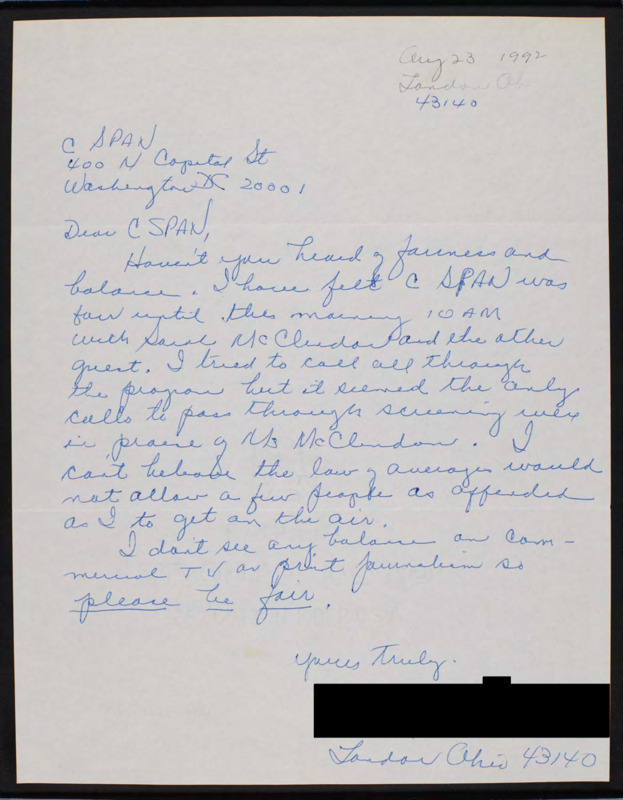 Aug 23 1992
London Oh
43140
C SPAN
400 N Capital St
Washington DC 20001
Dear C SPAN,
Haven't you heard of fairness and
balance. I have felt C SPAN was
fair until this morning 10 AM
with Sarah McClendon and the other
guest. I tried to call all through
the program but it seemed the only
calls to pass through screening were
in praise of Ms McClendon. I
can't believe the law of averages would
not allow a few people as offended
as I to get on the air.
I don't see any balance on com-
mercial TV or print journalism so
please be fair.
Yours Truly.
London Ohio 43140